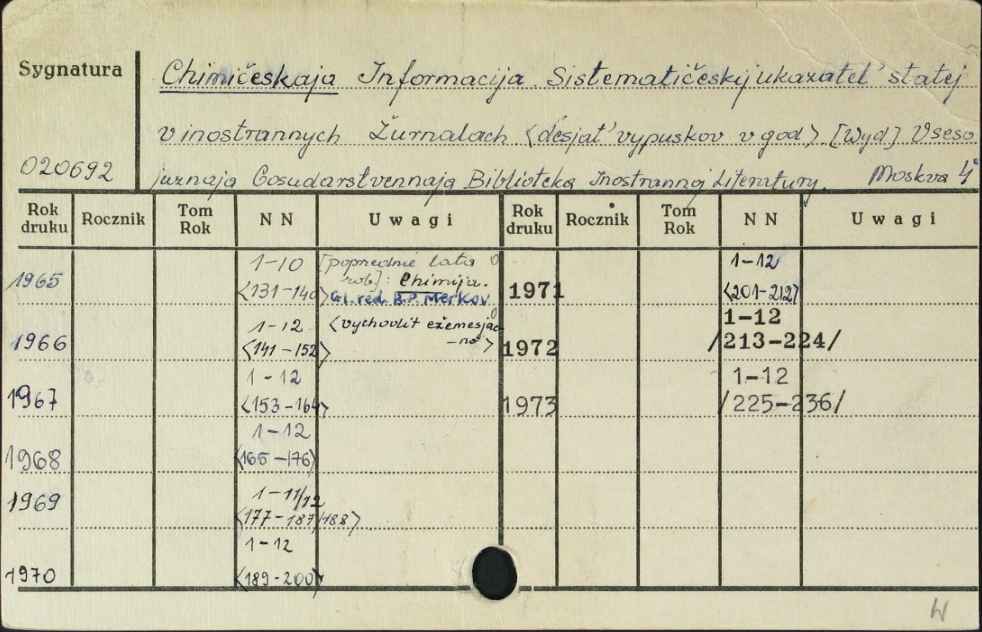 Sygnatura
Chimičeskaja Informacija. Sistematičeskij ukazatel' statej
v inostrannych Žurnalach <desjat' vypuskov v god> [Wyd] Vseso
020692
juznaja Gosudarstvennaja Biblioteka Inostrannoj Literatury. Moskva 4°
Rok druku Rocznik Tom Rok NN Uwagi Rok druku Rocznik Tom Rok NN Uwagi
1965 1-10 <131-140> [poprzednie lata
zob]: Chimija.
Gl. red. B.P. Merkov
1971 1-12 <201-212>
1966 1-12 <141-152> <vychodit ežemesjač
-no>
1972 1-12 /213-224/
1967 1-12 <153-164> 1973 1-12 /225-236/
1968 1-12 <165-176>
1969 1-11/12 <177-187/188>
1970 1-12 <189-200>
W